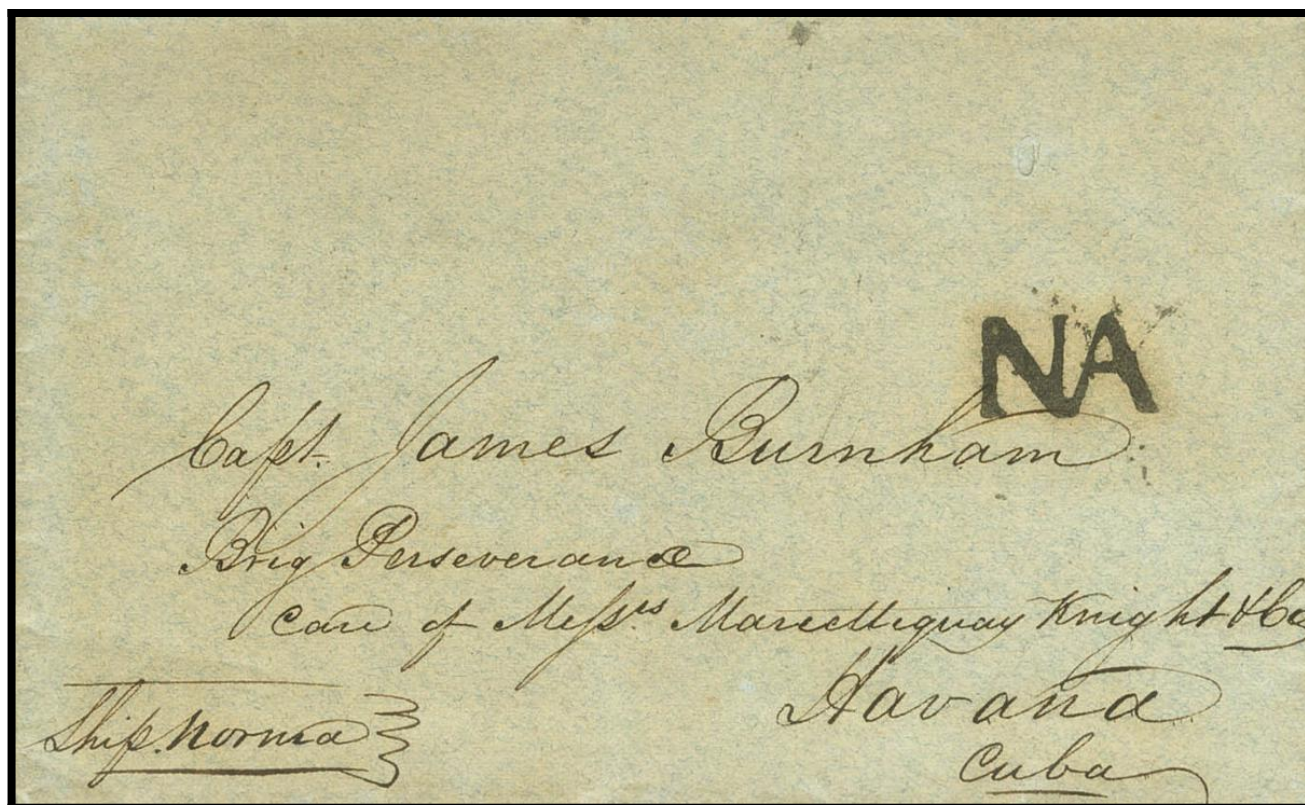 NA
Capt. James Burnham
Brig Perseverance
care of Messrs. Knight & Co
Havana
Cuba
Ship. Norma